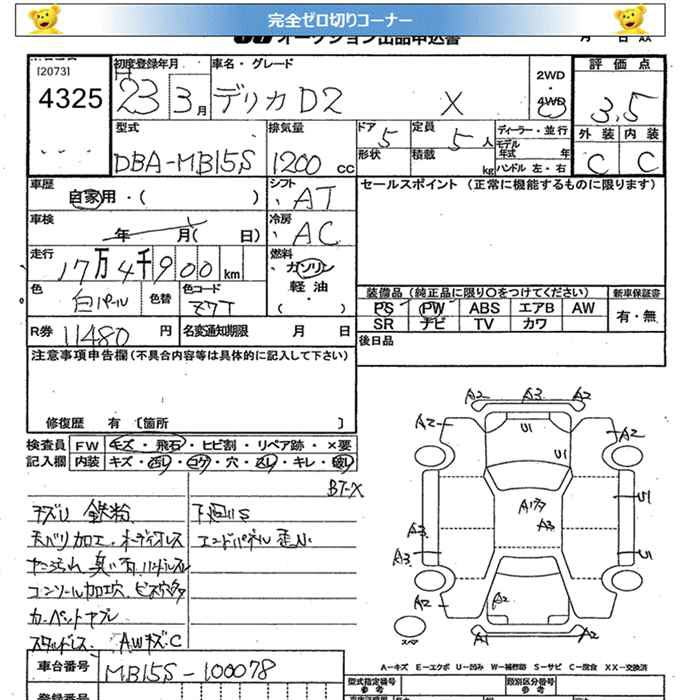 完全ゼロ切りコーナー
オークション出品申込書
月 日
[2073]
4325
初度登録年月
H23 3月
車名・グレード
デリカD2 X
2WD・4WD
評価点
3.5
外装 内装
C C
型式
DBA-MB15S
排気量
1200 cc
ドア 5
形状
定員 5人
積載 kg
ディーラー・並行
モデル年式 年
ハンドル 左・右
車歴
自家用・( )
シフト
AT
セールスポイント (正常に機能するものに限ります)
車検
年 月( 日)
冷房
AC
走行
17万4千900km
燃料
ガソリン
軽油
( )
色
白パール
色替
色コード
Z7T
装備品(純正品に限り○をつけてください)
新車保証書
PS PW ABS エアB AW
有・無
SR ナビ TV カワ
R券 11480円
名変通知期限 月 日
後日品
注意事項申告欄(不具合内容等は具体的に記入して下さい)
修復歴 有 [箇所 ]
検査員記入欄
FW キズ・飛石・ヒビ割・リペア跡・×要
内装 キズ・・コゲ・穴・・キレ・
BT-X
鉄粉 下廻りS
天ベリ加工 オーディオレス エンドパネル歪み
コンソール加工穴 ビス穴多
カーペットヤブレ
スタッドレス AWキズC
A2 A3 A2
A2 U1 A2
U1
A1多 U1
A3 A3
A3 U1
A2 A2 A2
A1 A2
スペア
A－キズ E－エクボ U－凹み W－補修跡 S－サビ C－腐食 XX－交換済
車台番号
MB15S-100078
登録番号
型式指定番号
参考
類別区分番号
参考